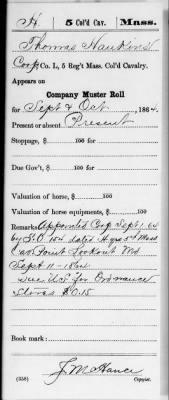 H 5 Col'd Cav. Mass.
Thomas Hawkins
Corp Co. L, 5 Reg't Mass. Col'd Cavalry.
Appears on
Company Muster Roll
for Sept & Oct, 1864.
Present or absent Present
Stoppage, $ 100 for
Due Gov't, $ 100 for
Valuation of horse, $ 100
Valuation of horse equipments, $ 100
Remarks: Appointed Corp Sept 1, 64
by S.O 104 dated Hqrs 5th Mass
Cav Point Lookout Md
Sept 11-1864
Due U.S. for Ordnance
Stores $0.15
Book mark:
(358) Copyist.